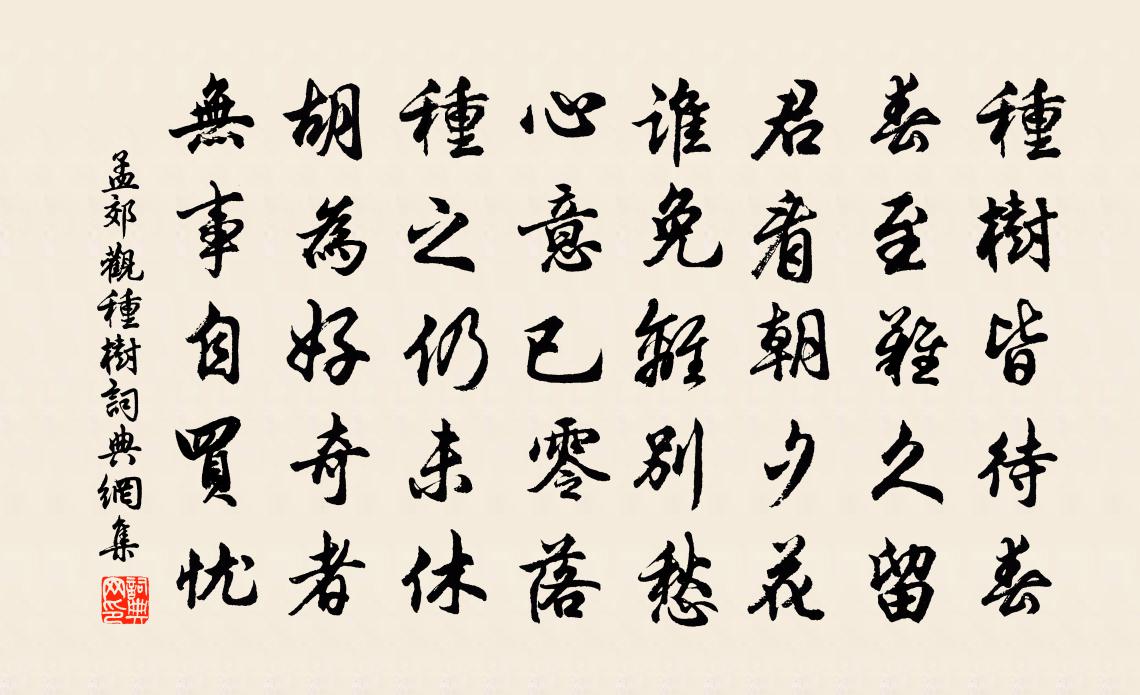 種樹皆待春
春至難久留
君看朝夕花
誰免離別愁
心意已零落
種之仍未休
胡為好奇者
無事自買忧
孟郊觀種樹詞典網集
詞典网印